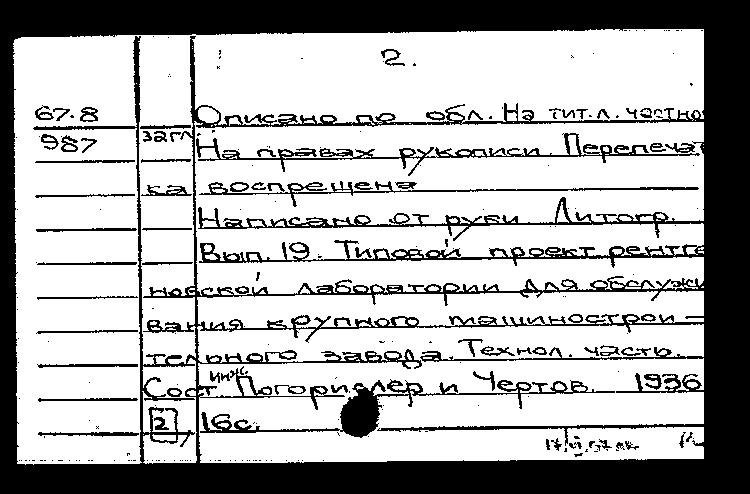 2.
67.8 Описано по обл. На тит.л. частно
987 загл На правах рукописи. Перепечат
ка воспрещена
Написано от руки Литогр.
Вып. 19. Типовой проект рентге
новской лаборатории для обслужи
вания крупного машинострои-
тельного завода. Технол. часть.
Сост. инж. и Чертов. 1936
2, 16с.